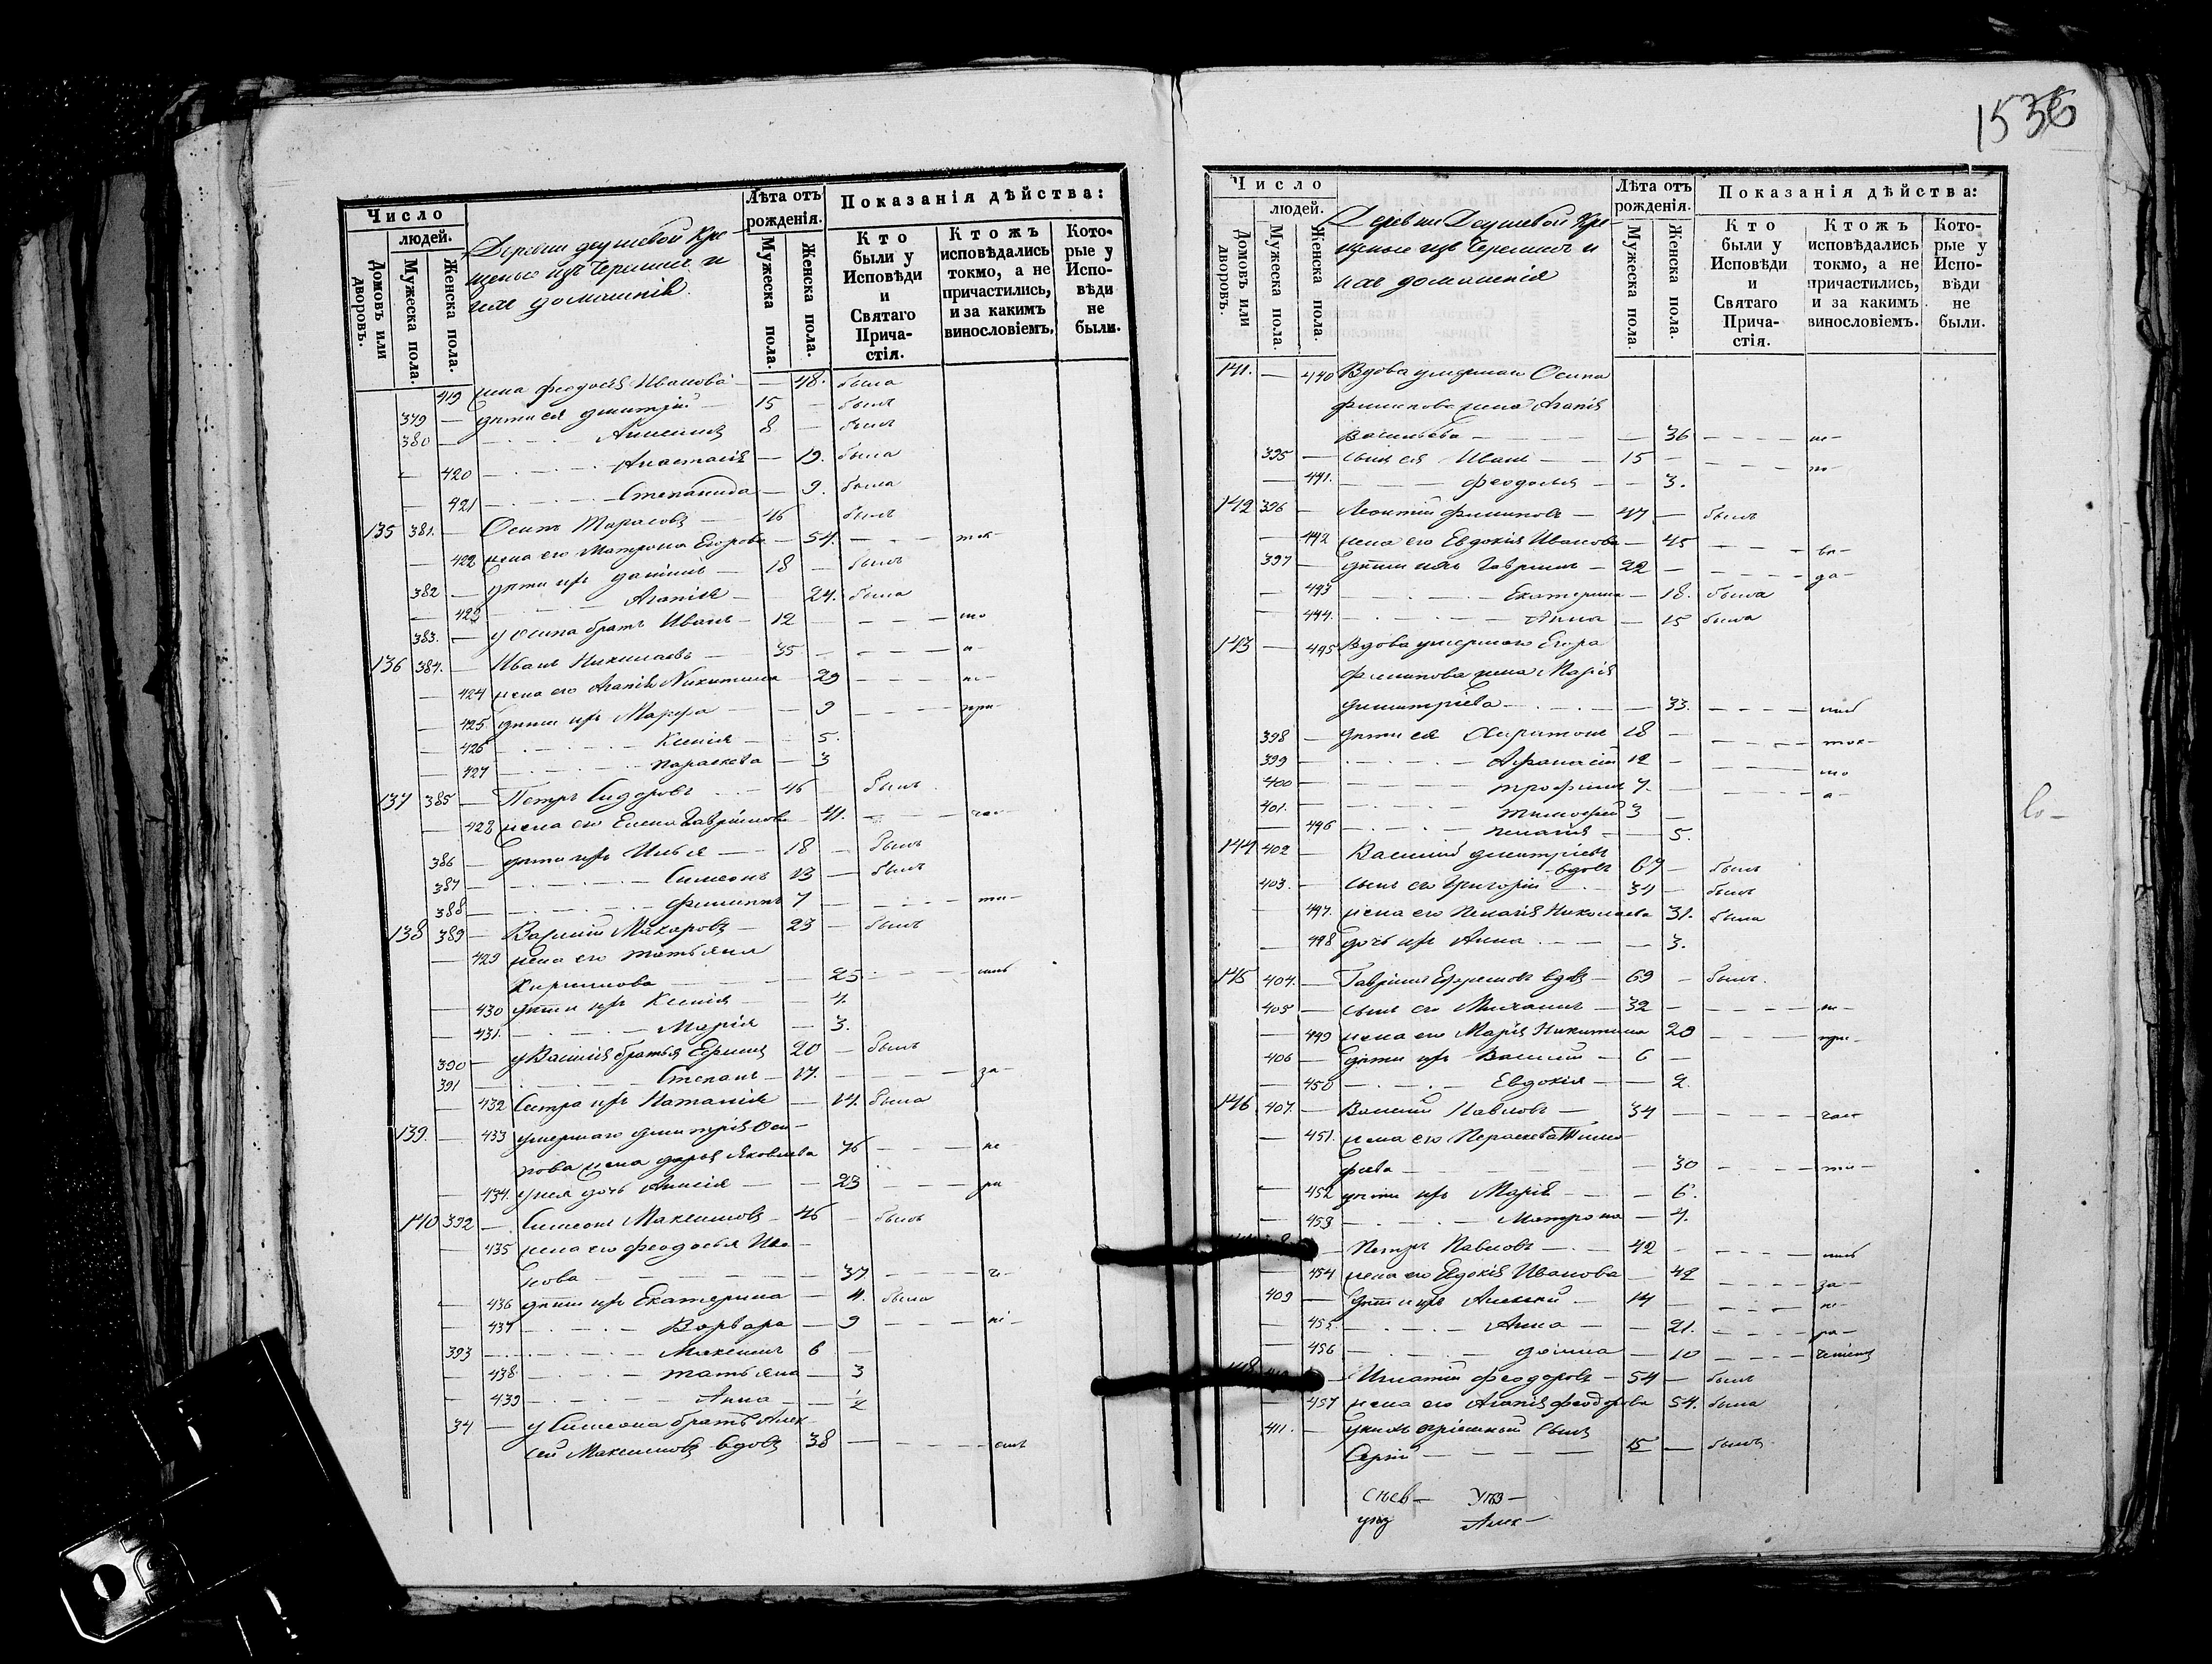 Число
людей.
Домовъ или дворовъ.
Мужеска пола.
Женска пола.
Деревни Деушевой Кре-
щеные изъ Черемисъ и
ихъ домашнія
Лѣта отъ рожденія.
Мужеска пола.
Женска пола.
Показанія дѣйства:
Кто были у Исповѣди и Святаго Прича-стія.
Ктожъ исповѣдались токмо, а не причастились, и за какимъ винословіемъ.
Кото-рые у Испо-вѣди не были.
419 жена Феодосія Иванова — 48. была
379 — дѣти ея Дмитрій 15 — былъ
380 — Алексій 8 — былъ
— 420 Анастасія — 19. была
— 421 Степанида — 9. была
135 381. — Осипъ Тарасовъ — 46 былъ
— 422 жена его Матрона Егорова — 54. — ток-
382 — дѣти ихъ Даніилъ — 18 — былъ
— 423 Агапія — 24. была
383. — у Осипа братъ Иванъ — 12 — мо
136 384. — Иванъ Николаевъ — 35 — а-
— 424 жена его Агапія Никитина — 29 — не-
— 425. дѣти ихъ Марфа — 9 — при-
— 426 Ксенія — 5.
— 427 Параскева — 3
137 385 — Петръ Сидоровъ — 46 былъ
— 428 жена его Елена Гавріилова — 41. — ча-
386 — дѣти ихъ Илья — 18 — былъ
387 — Симеонъ 13 — былъ
388 — Филиппъ 7 — сти-
138 389 — Василій Макаровъ — 23 — былъ
— 429 жена его Татьяна
Кирилова — 25 — лись
— 430 дѣти ихъ Ксенія — 4.
— 431. Марія — 3.
390 — у Василія братья Ефимъ 20 — былъ
391 Степанъ — 17. — за-
— 432 Сестра ихъ Наталія — 14. была
139. — 433 умершаго Дмитрія Оси-
пова жена Дарья Яковлева 46 — не
— 434. у нея дочь Анисія — 23 — ра
140 392 — Симеонъ Максимовъ — 46 — былъ
— 435 жена его Феодосья Ива-
нова — 37 — ч-
— 436 дѣти ихъ Екатерина — 11. была
— 437 Варвара — 9 — ні-
393 Максимъ 6 —
— 438 Татьяна — 3
— 439 Анна — ½
34 — у Симеона братъ Алек-
сей Максимовъ вдовъ 38 — емъ
1536
Число
людей.
Домовъ или дворовъ.
Мужеска пола.
Женска пола.
Деревни Деушевой Кре-
щеные изъ Черемисъ и
ихъ домашнія
Лѣта отъ рожденія.
Мужеска пола.
Женска пола.
Показанія дѣйства:
Кто были у Исповѣди и Святаго Прича-стія.
Ктожъ исповѣдались токмо, а не причастились, и за какимъ винословіемъ.
Кото-рые у Испо-вѣди не были.
141. — 440 Вдова умершаго Осипа
Филипова жена Агапія
Васильева — 36 — не-
395 — сынъ ея Иванъ — 15 —
— 441. Феодосья — 3.
142 396 — Леонтій Филиповъ — 47 — былъ
— 442 жена его Евдокія Иванова — 45 —
397 — дѣти ихъ Гавріилъ — 22 —
— 443 Екатерина — 18. была
— 444. Анна — 15 была
143 — 445 Вдова умершаго Егора
Филипова жена Марія
Димитріева — 33. — лись
398 — дѣти ея Харитонъ 18 — ток-
399 — Афанасій 12 — мо
400 — Трофимъ 7. — а-
401. — Тимофей 3 —
— 446 Пелагія — 5.
144 402 — Василій Дмитріевъ
вдовъ 67 — былъ
403. — сынъ его Григорій — 34 — былъ
— 447. жена его Пелагія Николаева 31. была
— 448 дочь ихъ Анна — 3.
145 404. — Гавріилъ Ефремовъ вдовъ — 69 — былъ.
405 — сынъ его Михаилъ — 32 — не-
— 449 жена его Марія Никитина 20 — при-
406 — дѣти ихъ Василій — 6 —
— 450 Евдокія — 2
146 407. — Василій Павловъ — 34 — част
— 451. жена его Параскева Тимо-
феева — 30 — ти-
— 452 дѣти ихъ Марія — 6.
— 453 Матрона — 4.
— Петръ Павловъ — 42 — лись
— 454 жена его Евдокія Иванова — 42 — за-
409 — дѣти ихъ Алексѣй — 14 — не-
— 455. Анна — 21. — ра-
— 456 — 10 — ченіемъ
148 — Игнатій Феодоровъ — 54 — былъ
— 457 жена его Агапія Феодорова 54. была
411. — у нихъ пріемный сынъ
Сергій — 15 — былъ